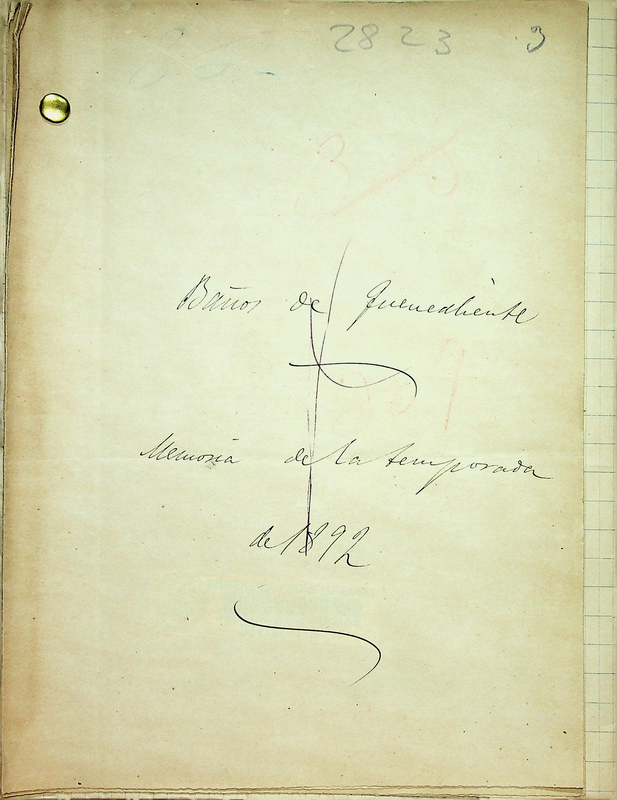 2823 3
Baños de Fuencaliente
Memoria de la temporada
de 1892